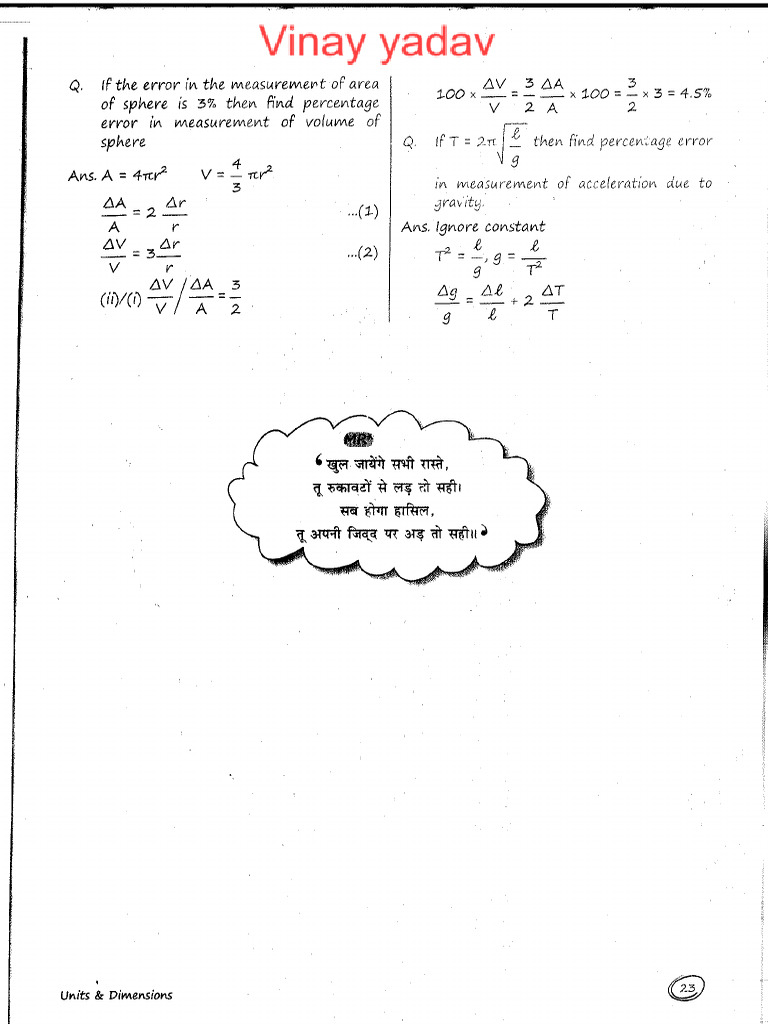 Vinay yadav
Q. If the error in the measurement of area
of sphere is 3% then find percentage
error in measurement of volume of
sphere
Ans. A = 4πr² V = 4/3 πr²
ΔA/A = 2 Δr/r ...(1)
ΔV/V = 3 Δr/r ...(2)
(ii)/(i) ΔV/V / ΔA/A = 3/2
100 × ΔV/V = 3/2 ΔA/A × 100 = 3/2 × 3 = 4.5%
Q. If T = 2π√(ℓ/g) then find percentage error
in measurement of acceleration due to
gravity.
Ans. Ignore constant
T² = ℓ/g, g = ℓ/T²
Δg/g = Δℓ/ℓ + 2 ΔT/T
MR*
‘खुल जायेंगे सभी रास्ते,
तू रुकावटों से लड़ तो सही।
सब होगा हासिल,
तू अपनी जिद्द पर अड़ तो सही॥’
Units & Dimensions
23